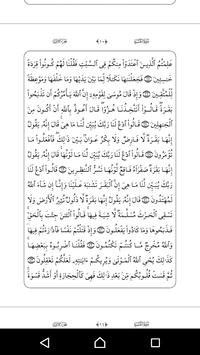 سُورَةُ البَقَرَةِ ١٠ الجُزْءُ الأَوَّلُ
عَلِمْتُمُ ٱلَّذِينَ ٱعْتَدَوْا۟ مِنكُمْ فِى ٱلسَّبْتِ فَقُلْنَا لَهُمْ كُونُوا۟ قِرَدَةً
خَـٰسِـِٔينَ ۝٦٥ فَجَعَلْنَـٰهَا نَكَـٰلًا لِّمَا بَيْنَ يَدَيْهَا وَمَا خَلْفَهَا وَمَوْعِظَةً
لِّلْمُتَّقِينَ ۝٦٦ وَإِذْ قَالَ مُوسَىٰ لِقَوْمِهِۦٓ إِنَّ ٱللَّهَ يَأْمُرُكُمْ أَن تَذْبَحُوا۟
بَقَرَةً قَالُوٓا۟ أَتَتَّخِذُنَا هُزُوًا قَالَ أَعُوذُ بِٱللَّهِ أَنْ أَكُونَ مِنَ
ٱلْجَـٰهِلِينَ ۝٦٧ قَالُوا۟ ٱدْعُ لَنَا رَبَّكَ يُبَيِّن لَّنَا مَا هِىَ قَالَ إِنَّهُۥ يَقُولُ
إِنَّهَا بَقَرَةٌ لَّا فَارِضٌ وَلَا بِكْرٌ عَوَانٌۢ بَيْنَ ذَٰلِكَ فَٱفْعَلُوا۟ مَا
تُؤْمَرُونَ ۝٦٨ قَالُوا۟ ٱدْعُ لَنَا رَبَّكَ يُبَيِّن لَّنَا مَا لَوْنُهَا قَالَ إِنَّهُۥ يَقُولُ
إِنَّهَا بَقَرَةٌ صَفْرَآءُ فَاقِعٌ لَّوْنُهَا تَسُرُّ ٱلنَّـٰظِرِينَ ۝٦٩ قَالُوا۟ ٱدْعُ
لَنَا رَبَّكَ يُبَيِّن لَّنَا مَا هِىَ إِنَّ ٱلْبَقَرَ تَشَـٰبَهَ عَلَيْنَا وَإِنَّآ إِن شَآءَ ٱللَّهُ
لَمُهْتَدُونَ ۝٧٠ قَالَ إِنَّهُۥ يَقُولُ إِنَّهَا بَقَرَةٌ لَّا ذَلُولٌ تُثِيرُ ٱلْأَرْضَ وَلَا
تَسْقِى ٱلْحَرْثَ مُسَلَّمَةٌ لَّا شِيَةَ فِيهَا قَالُوا۟ ٱلْـَٔـٰنَ جِئْتَ بِٱلْحَقِّ
فَذَبَحُوهَا وَمَا كَادُوا۟ يَفْعَلُونَ ۝٧١ وَإِذْ قَتَلْتُمْ نَفْسًا فَٱدَّٰرَْٰٔتُمْ فِيهَا
وَٱللَّهُ مُخْرِجٌ مَّا كُنتُمْ تَكْتُمُونَ ۝٧٢ فَقُلْنَا ٱضْرِبُوهُ بِبَعْضِهَا
كَذَٰلِكَ يُحْىِ ٱللَّهُ ٱلْمَوْتَىٰ وَيُرِيكُمْ ءَايَـٰتِهِۦ لَعَلَّكُمْ تَعْقِلُونَ ۝٧٣
ثُمَّ قَسَتْ قُلُوبُكُم مِّنۢ بَعْدِ ذَٰلِكَ فَهِىَ كَٱلْحِجَارَةِ أَوْ أَشَدُّ قَسْوَةً
سُورَةُ البَقَرَةِ ١١ الجُزْءُ الأَوَّلُ